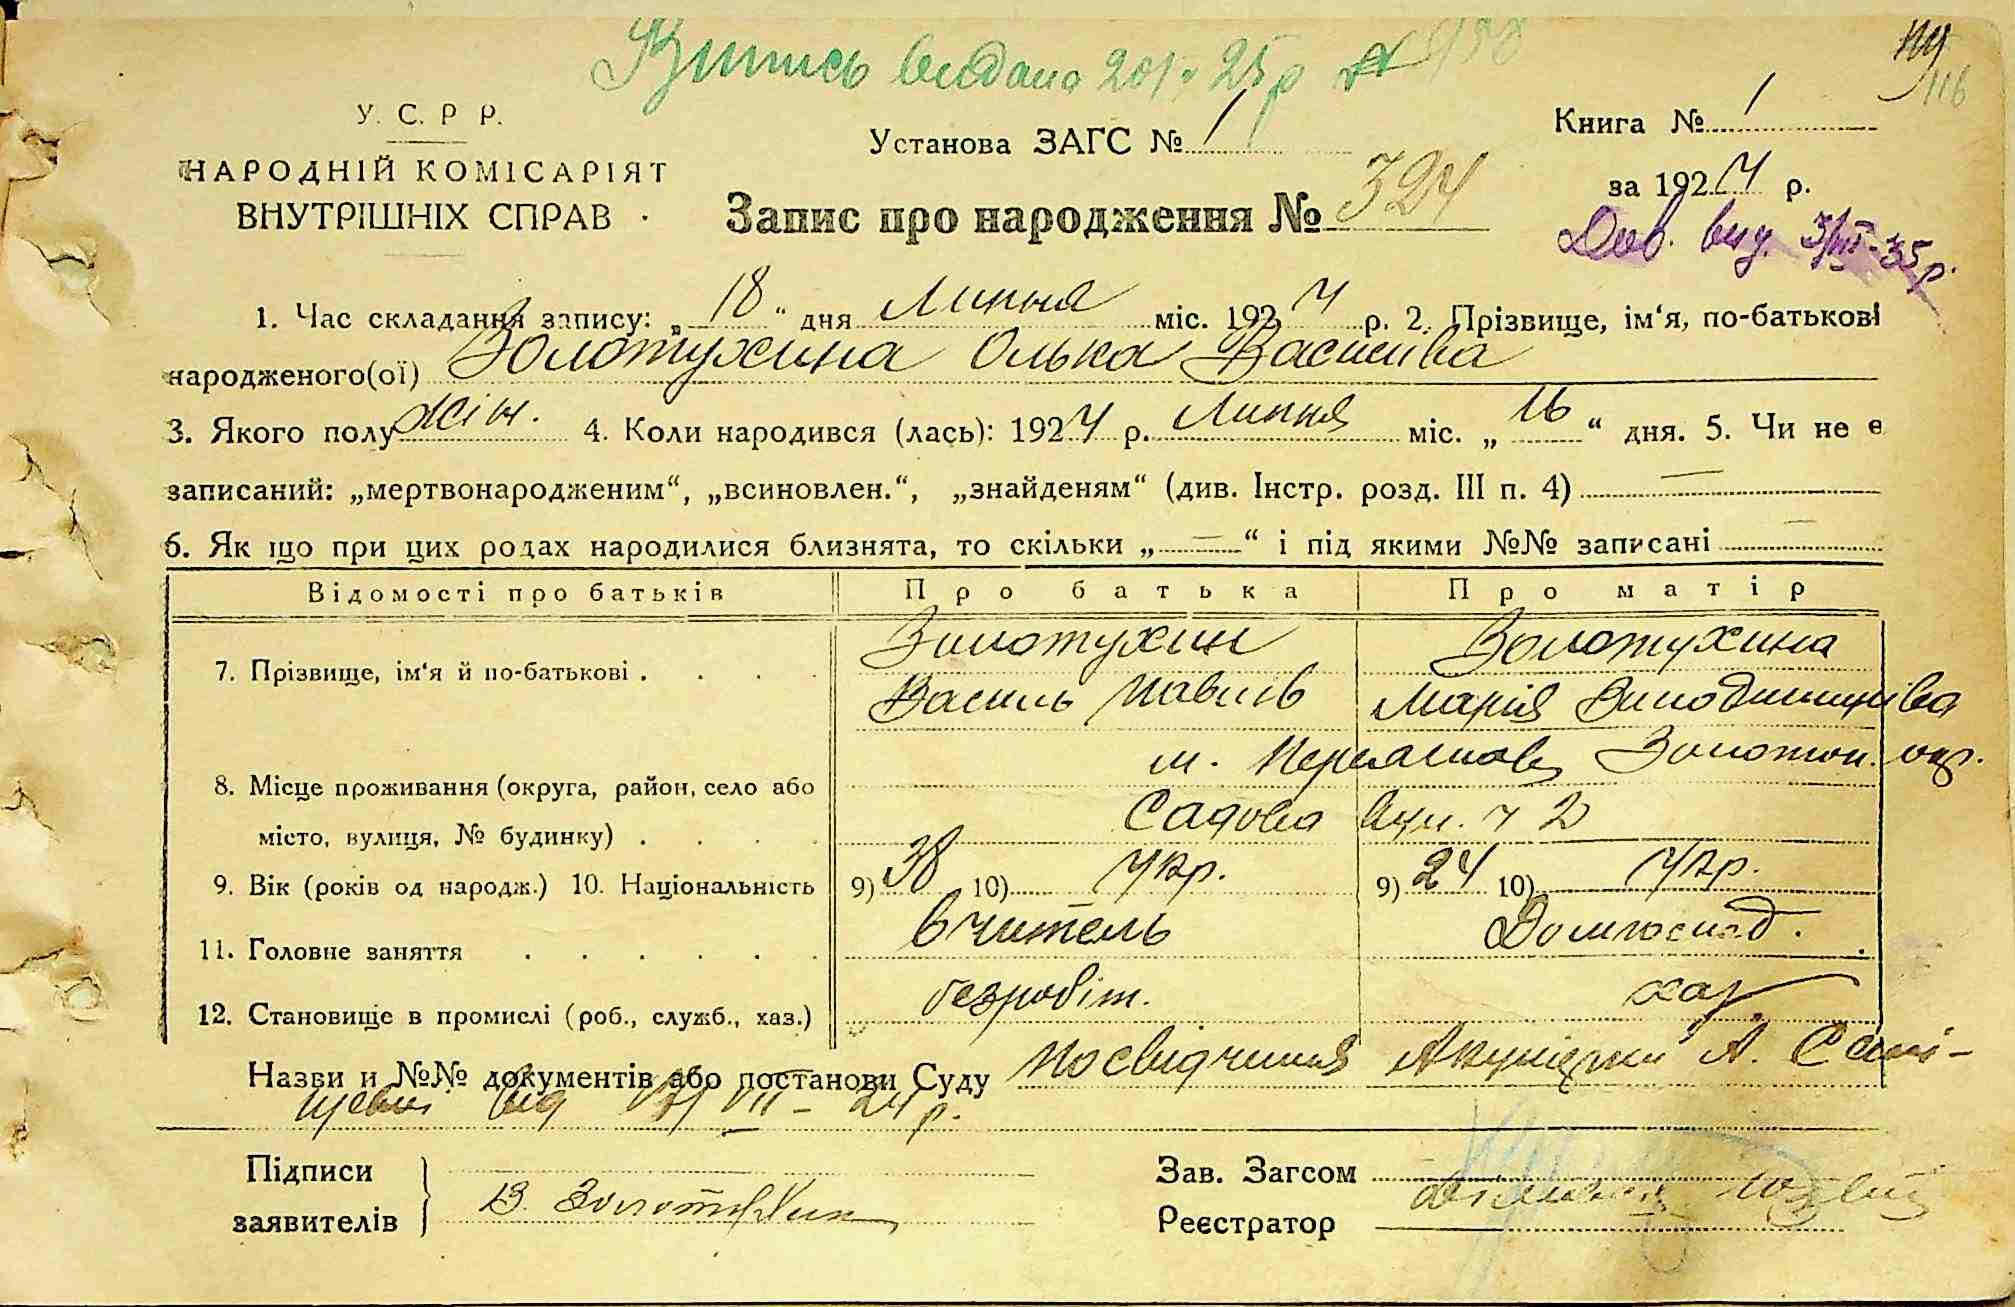 Витись видано 20/V 25 р №
114
116
У. С. Р Р.
НАРОДНІЙ КОМІСАРІЯТ
ВНУТРІШНІХ СПРАВ
Установа ЗАГС № 1
Запис про народження № 324
Книга № 1
за 1924 р.
Дов. вид. 3/III-35 р.
1. Час складання запису: „18“ дня Липня міс. 1924 р. 2. Прізвище, ім‘я, по-батькові
народженого(ої) Золотухина Олька Василіва
3. Якого полу жін. 4. Коли народився (лась): 1924 р. Липня міс. „16“ дня. 5. Чи не е
записаний: „мертвонародженим“, „всиновлен.“, „знайденям“ (див. Інстр. розд. III п. 4) —
6. Як що при цих родах народилися близнята, то скільки „—“ і під якими №№ записані —
Відомості про батьків Про батька Про матір
7. Прізвище, ім‘я й по-батькові . . . . Золотухин Золотухина
Василь Павлів Марія
м. Переяслов Золотон. окр.
8. Місце проживання (округа, район, село або
місто, вулиця, № будинку) . . . . Садова вул. ч 2
9. Вік (років од народж.) 10. Національність 9) 38 10) Укр. 9) 24 10) Укр.
11. Головне заняття . . . . . . вчитель Домгоспод.
12. Становище в промислі (роб., служб., хаз.) безробіт. хаз
Назви и №№ документів або постанови Суду Посвідчиння Акушерки А.
від VII-24 р.
Підписи
заявителів
В. Золотухин
Зав. Загсом
Реєстратор